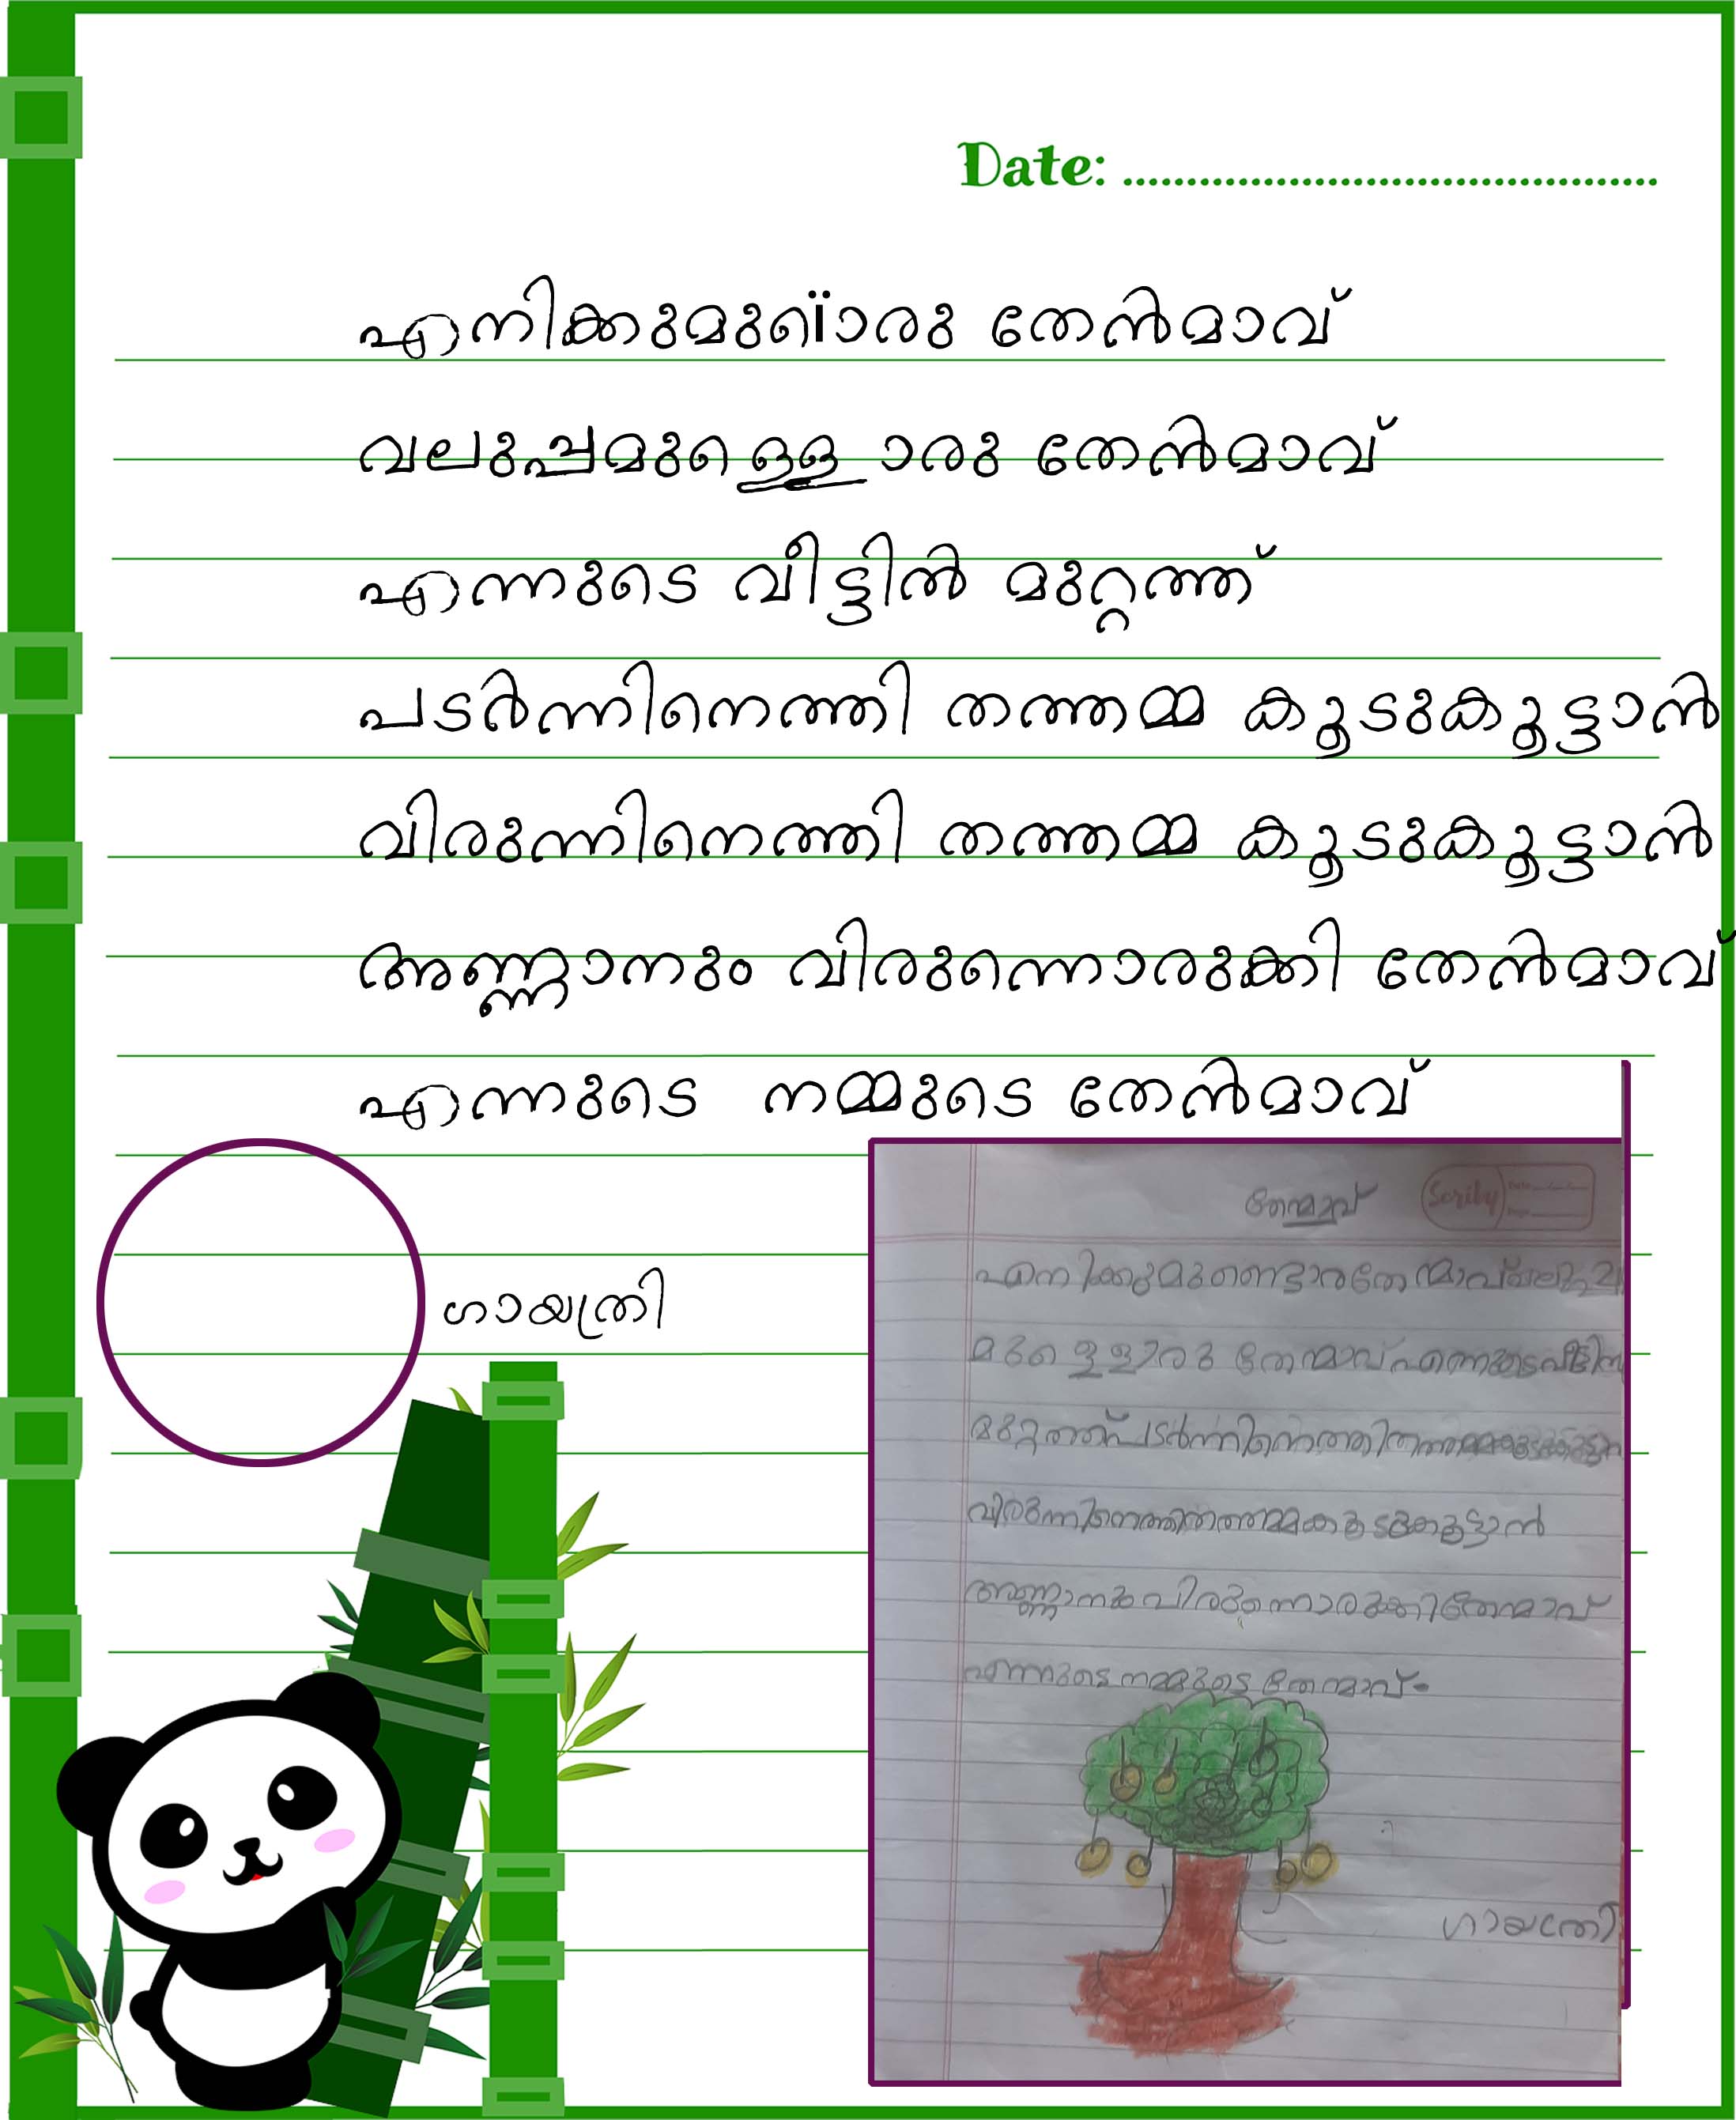 Date: ........................................
എനിക്കുമുണ്ൊരു തേൻമാവ്
വലുപ്പമുള്ളൊരു തേൻമാവ്
എന്നുടെ വീട്ടിൽ മുറ്റത്ത്
പടർന്നിനെത്തി തത്തമ്മ കൂടുകൂട്ടാൻ
വിരുന്നിനെത്തി തത്തമ്മ കൂടുകൂട്ടാൻ
അണ്ണാനും വിരുന്നൊരുക്കി തേൻമാവ്
എന്നുടെ നമ്മുടെ തേൻമാവ്
ഗായത്രി
തേന്മാവ്
Scrily
എനിക്കുമുണ്ടൊരു തേന്മാവ്
മുള്ളൊരു തേന്മാവ് എന്നുടെ
മുറ്റത്ത് പടർന്നിനെത്തി
വിരുന്നിനെത്തി തത്തമ്മ കൂടുകൂട്ടാൻ
അണ്ണാനും വിരുന്നൊരുക്കി തേന്മാവ്
എന്നുടെ നമ്മുടെ തേന്മാവ്
ഗായത്രി